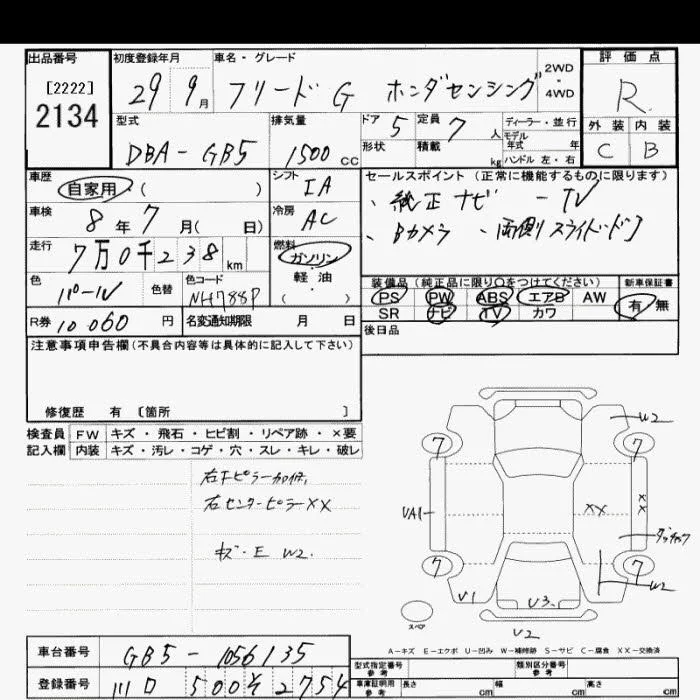 出品番号 初度登録年月 車名・グレード 2WD・4WD 評価点
[2222]
2134
29 9月 フリード G ホンダセンシング R
型式 排気量 ドア 5 定員 7 人 ディーラー・並行 外装 内装
DBA-GB5 1500 CC 形状 積載 kg モデル年式 年 C B
ハンドル 左・右
車歴 自家用・( ) シフト IA セールスポイント (正常に機能するものに限ります)
車検 8年 7月( 日) 冷房 AC 、純正ナビ -TV
、Bカメラ 、両側スライドドア
走行 7万0千238km 燃料 ガソリン・軽油・( )
色 パール 色替 色コード NH788P
装備品 (純正品に限り○をつけてください) 新車保証書
PS PW ABS エアB AW 有・無
SR ナビ TV カワ
R券 10.060円 名変通知期限 月 日
後日品
注意事項申告欄 (不具合内容等は具体的に記入して下さい)
修復歴 有 〔箇所 〕
検査員 FW キズ・飛石・ヒビ割・リペア跡・×要
記入欄 内装 キズ・汚レ・コゲ・穴・スレ・キレ・破レ
右センターピラーXX
キズ・E W2.
W2
7 7
VA1 XX XX
7 7
W2
V1 V3
V2
スペア
A－キズ E－エクボ U－凹み W－補修跡 S－サビ C－腐食 XX－交換済
車台番号 GB5-1056135
型式指定番号 参考 類別区分番号 参考
登録番号 川口 500 そ 2754
車庫証明用 参考 長さ cm 幅 cm 高さ cm